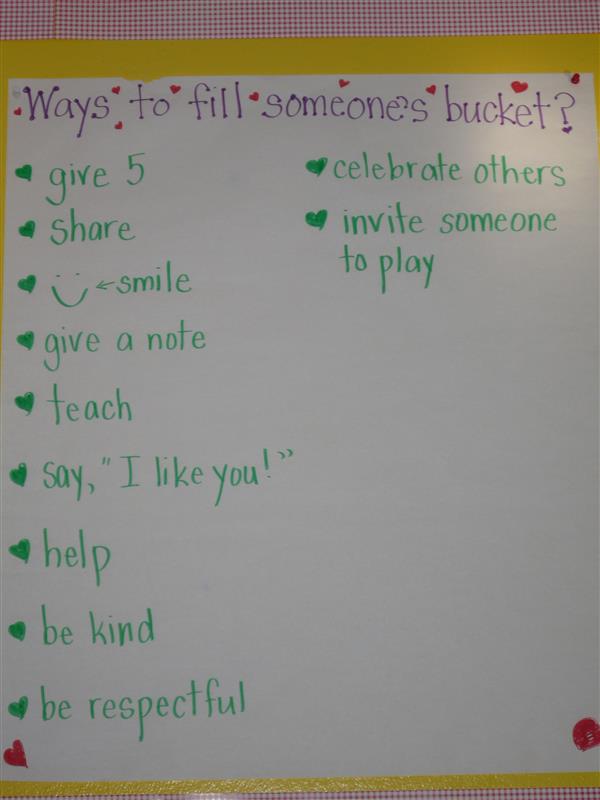 Ways to fill someone's bucket?
give 5
share
←smile
give a note
teach
say, "I like you!"
help
be kind
be respectful
celebrate others
invite someone
to play